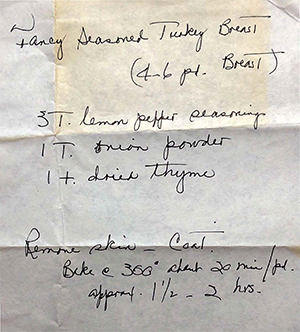 Fancy Seasoned Turkey Breast
(4-6 pd. Breast)
3 T. lemon pepper seasonings
1 T. onion powder
1 t. dried thyme
Remove skin - Coat.
Bake @ 300° about 20 min/pd.
approx. 1½ - 2 hrs.